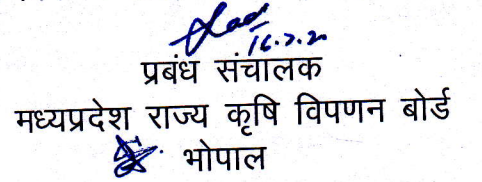 16.7.20
प्रबंध संचालक
मध्यप्रदेश राज्य कृषि विपणन बोर्ड
भोपाल